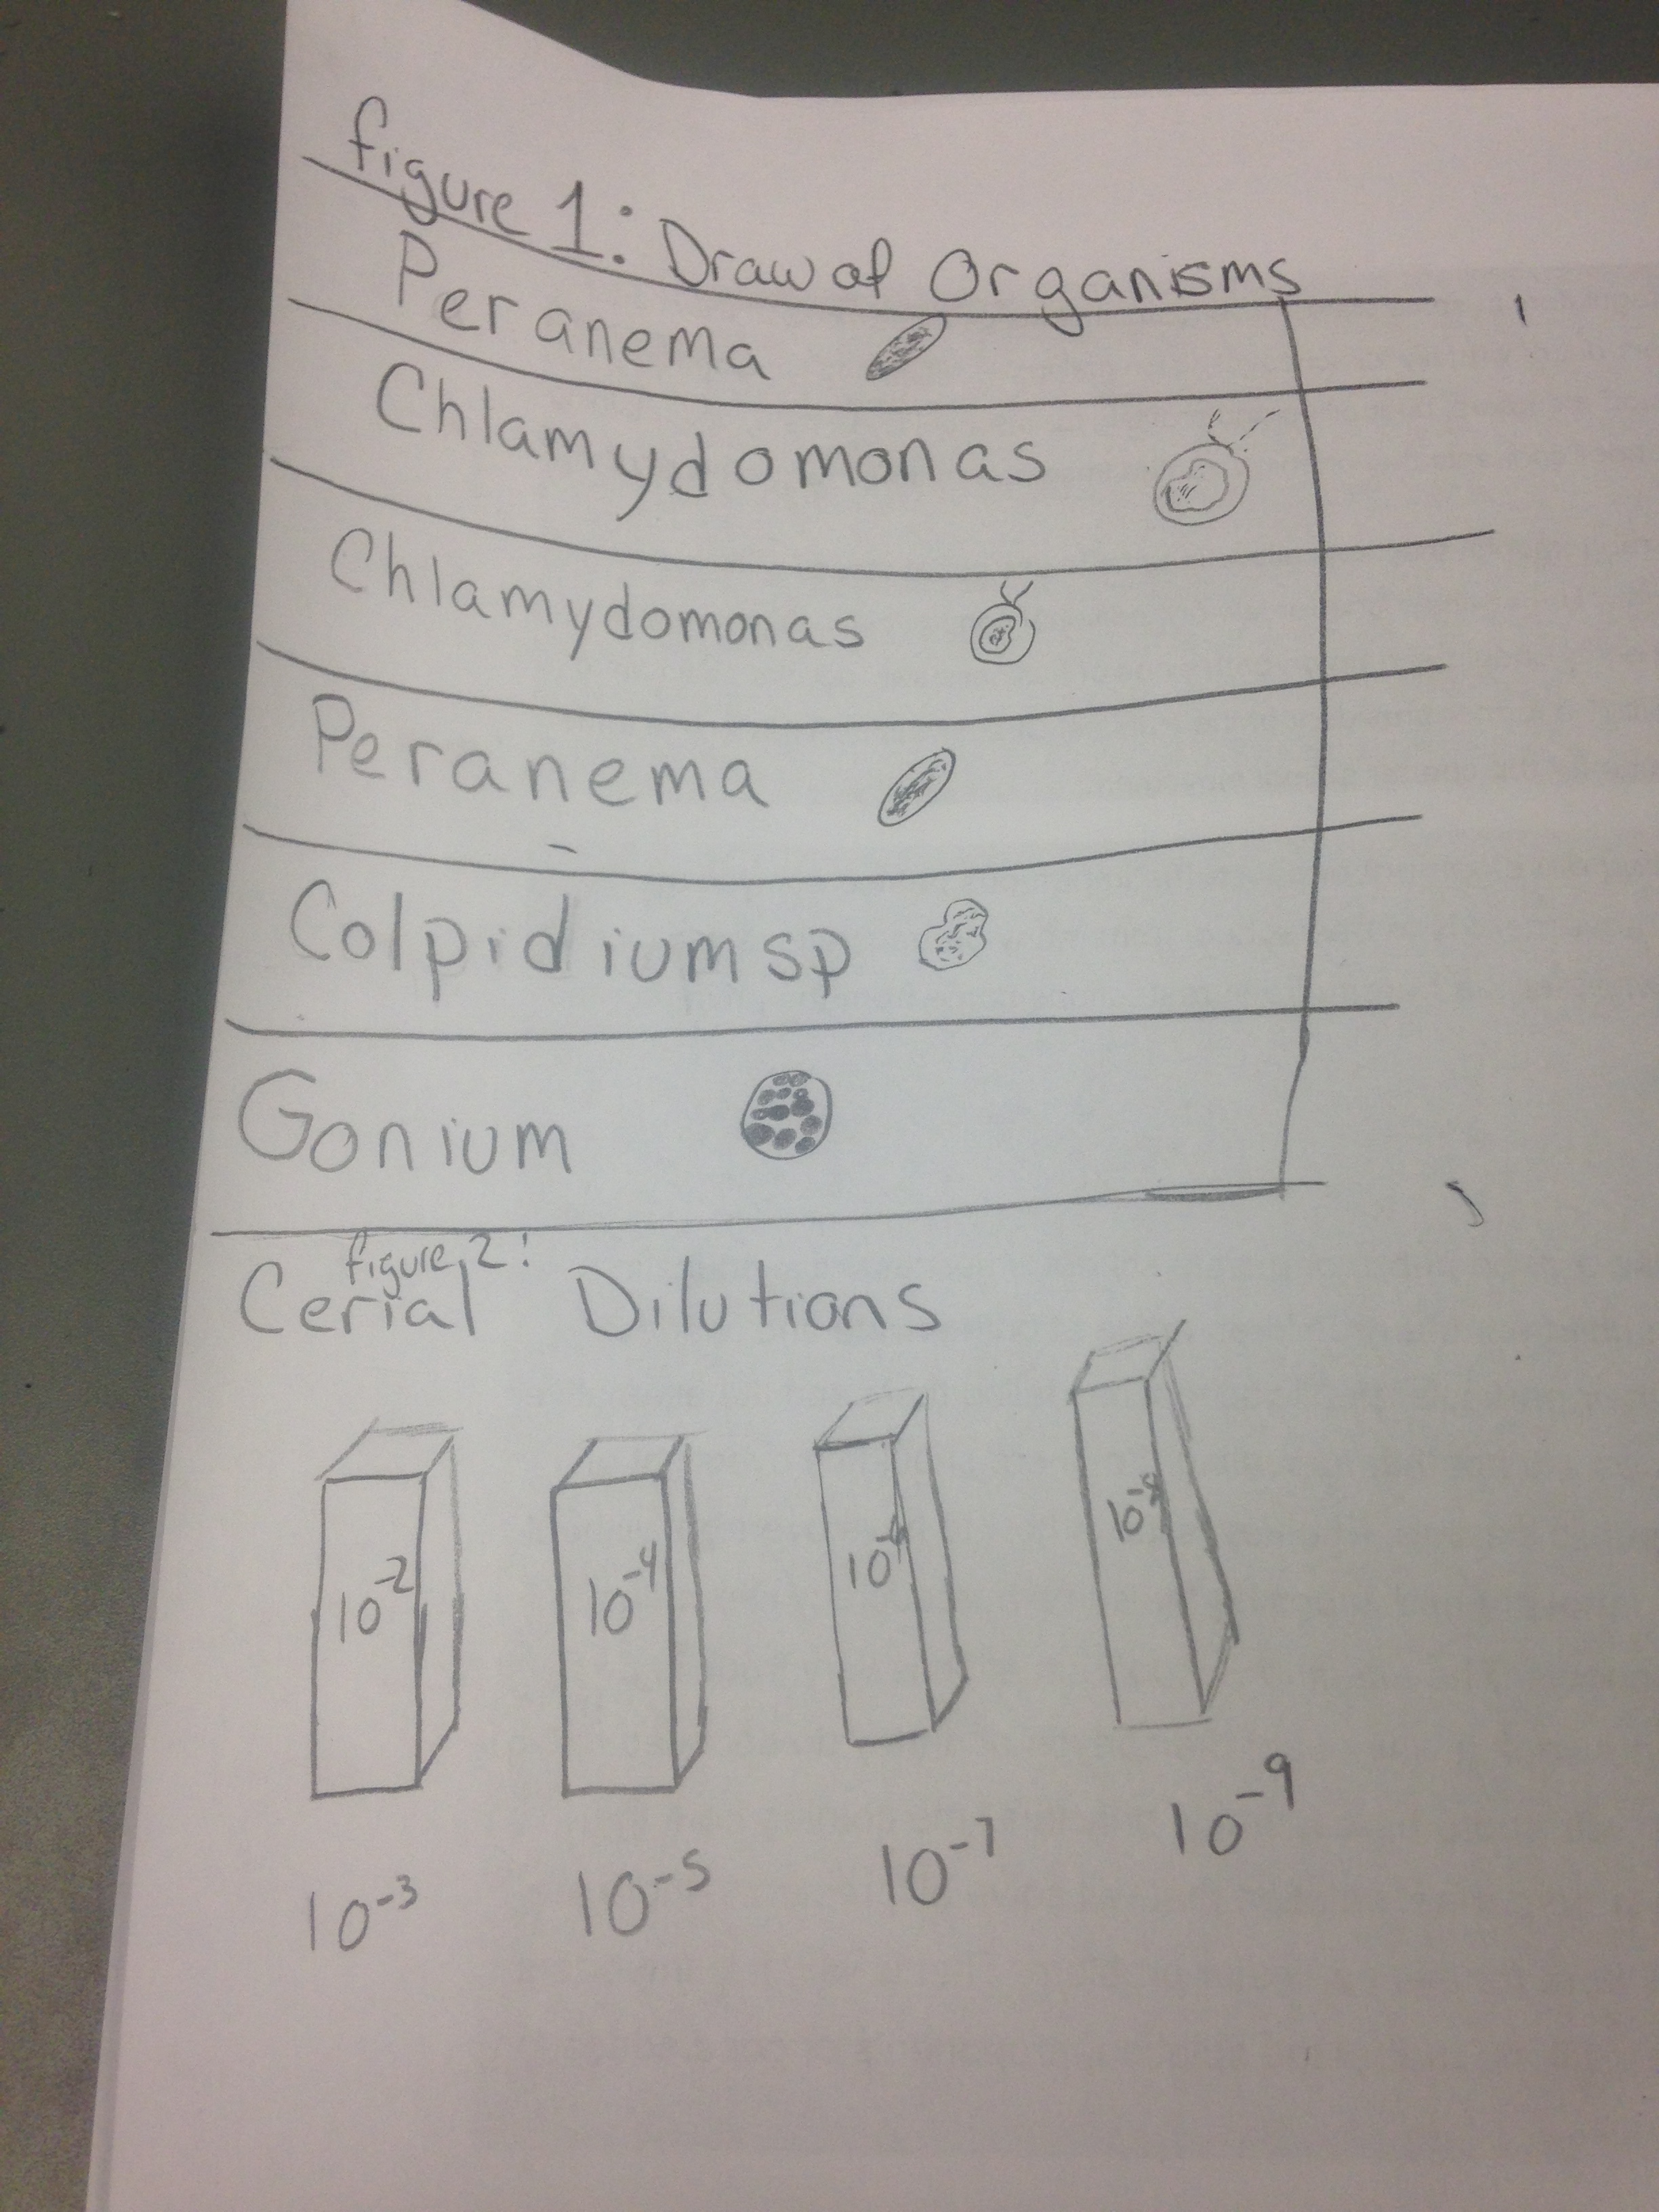 figure 1: Draw of Organisms
Peranema
Chlamydomonas
Chlamydomonas
Peranema
Colpidium sp
Gonium
figure 2:
Cerial Dilutions
10⁻² 10⁻⁴ 10⁻⁶ 10⁻⁸
10⁻³ 10⁻⁵ 10⁻⁷ 10⁻⁹